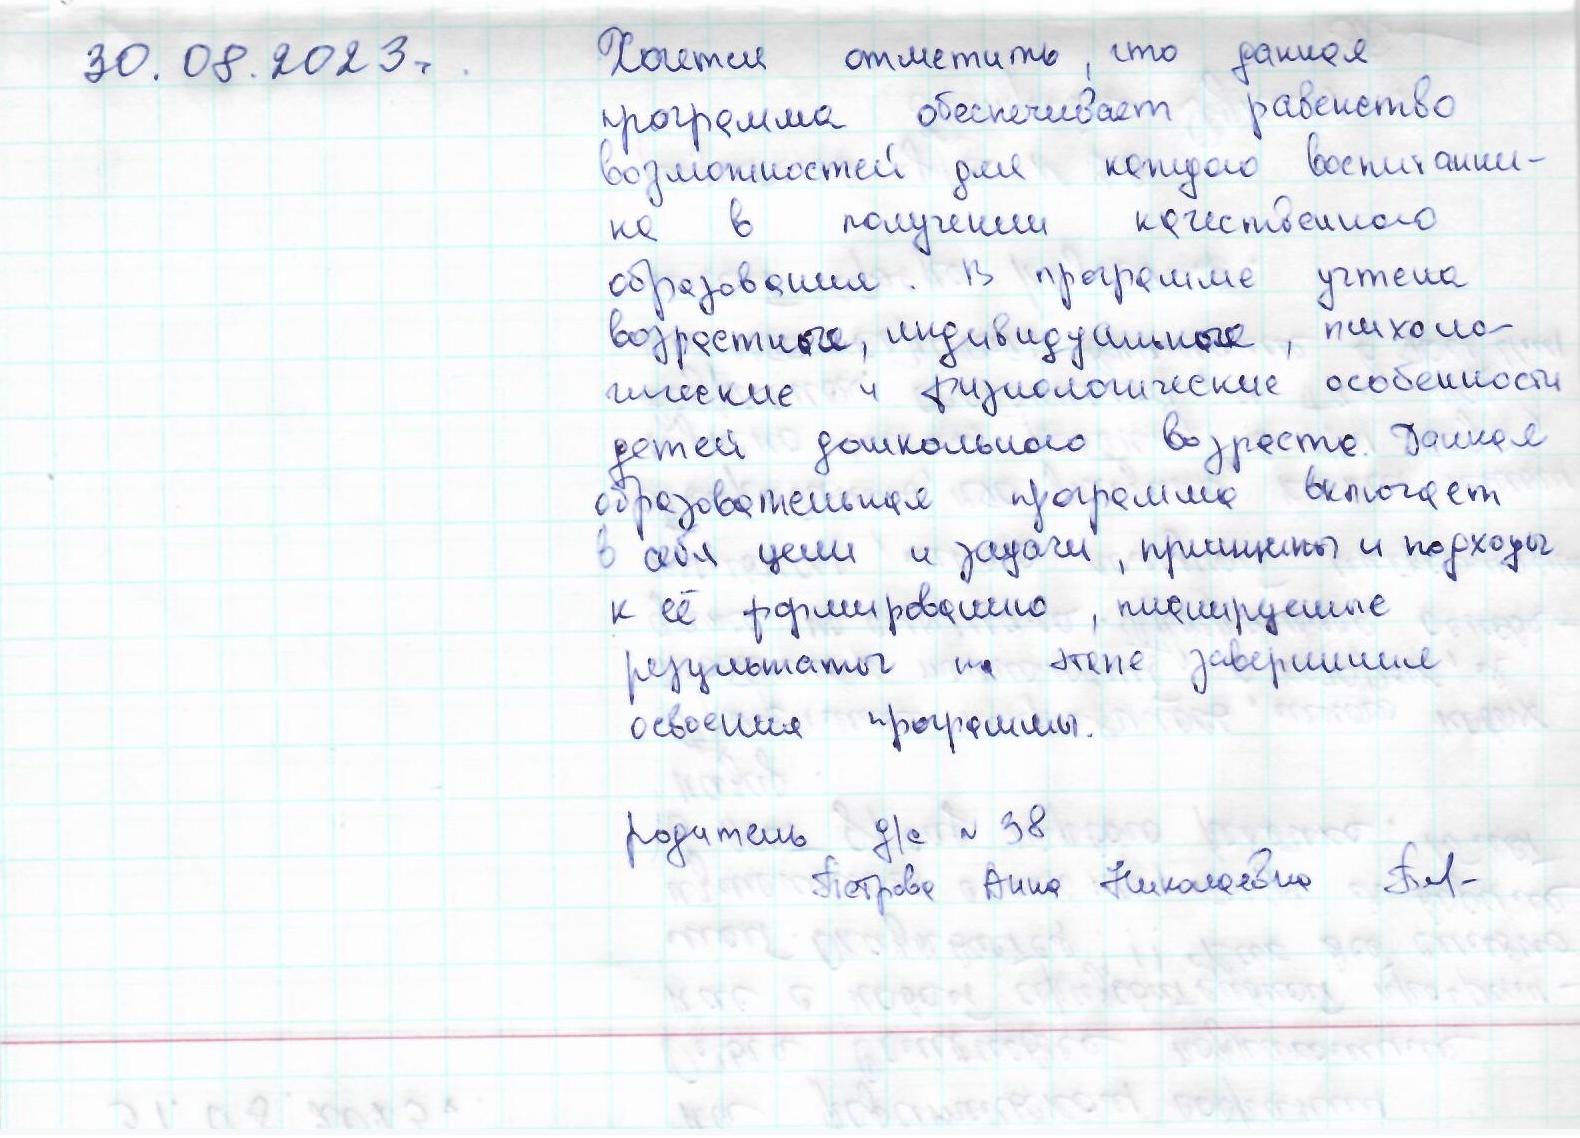 30.08.2023г.
Хочется отметить, что данная
программа обеспечивает равенство
возможностей для каждого воспитанни-
ка в получении качественного
образования. В программе учтена
возрастные, индивидуальные, психоло-
гические и физиологические особенности
детей дошкольного возраста. Данная
образовательная программа включает
в себя цели и задачи, принципы и подходы
к её формированию, планируемые
результаты на этапе завершения
освоения программы.
родитель д/с № 38
Петрова Анна Николаевна